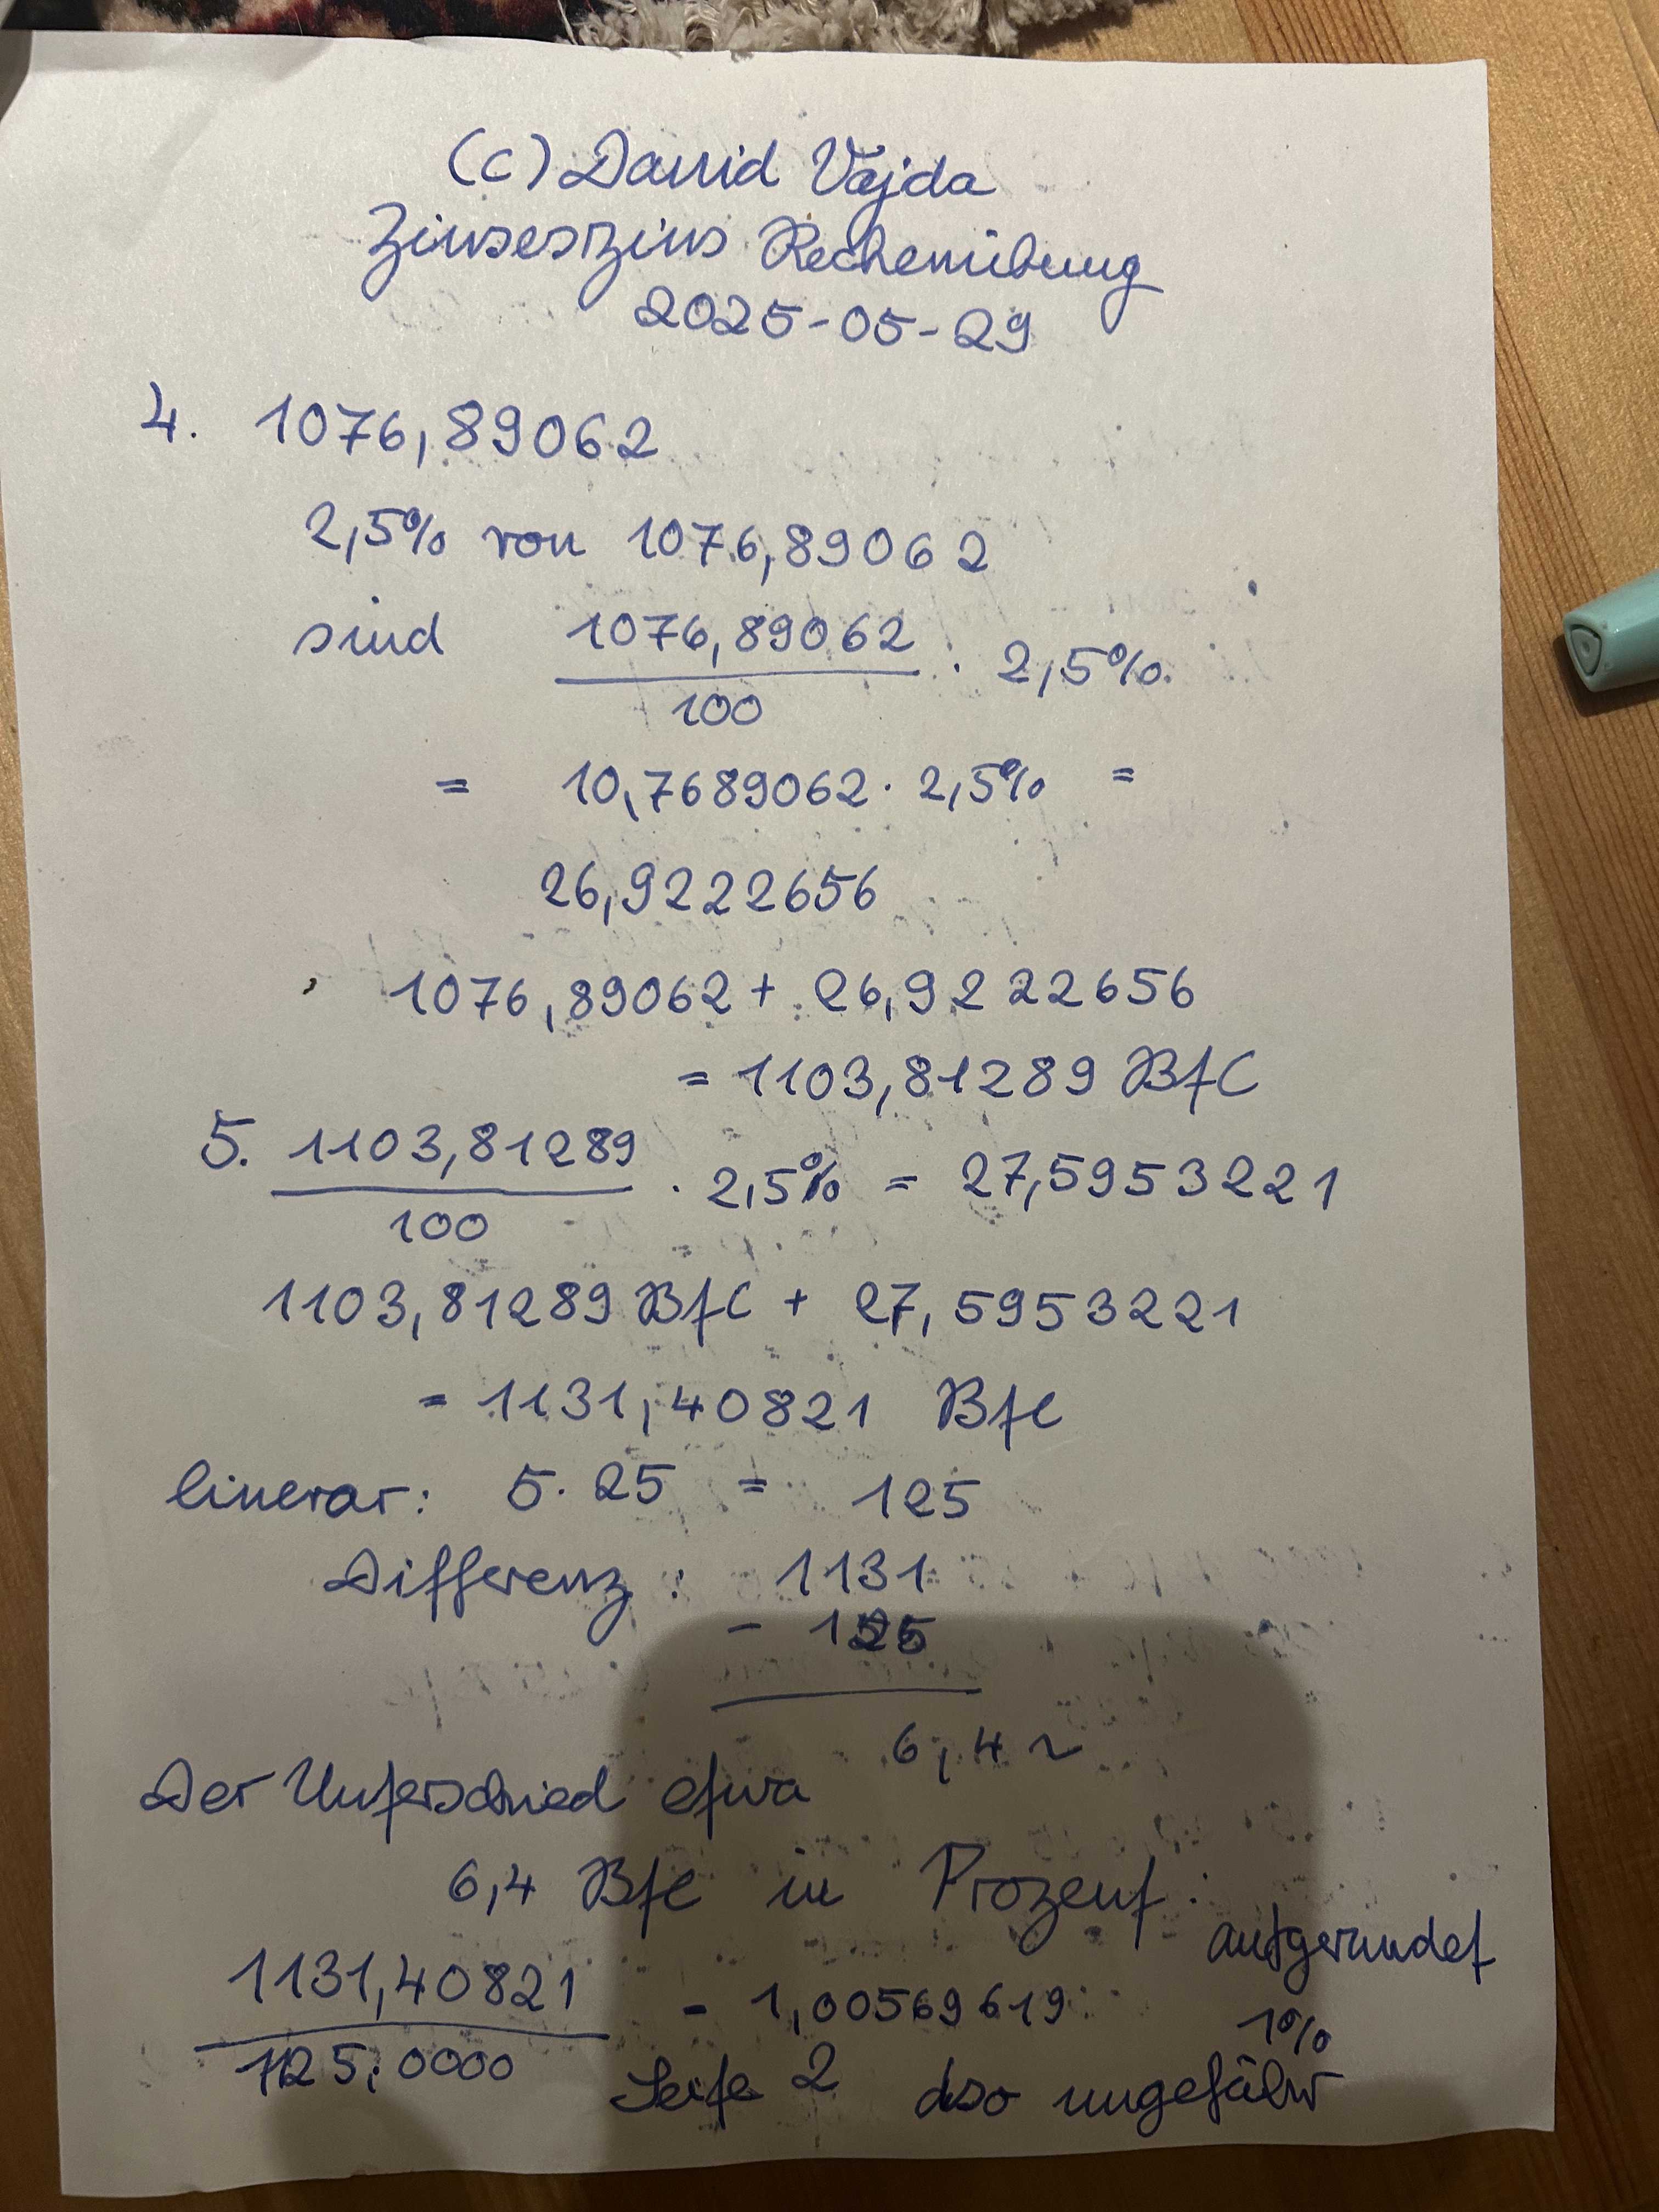 (c) David Vajda
Zinseszins Rechenübung
2025-05-29
4. 1076,89062
2,5% von 1076,89062
sind 1076,89062 / 100 · 2,5%.
= 10,7689062 · 2,5% =
26,9222656
1076,89062 + 26,9222656
= 1103,81289 BfC
5. 1103,81289 / 100 · 2,5% = 27,5953221
1103,81289 BfC + 27,5953221
= 1131,40821 Bfc
linerar: 5 · 25 = 125
Differenz: 1131
- 125
6,4 ~
Der Unterschied etwa
6,4 Bfc in Prozent:
aufgerundet
1131,40821 / 1125,0000 = 1,00569619 1%
Seite 2 also ungefähr